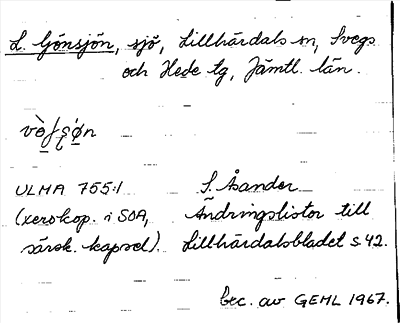 L. Gönsjön, sjö, Lillhärdals sn, Svegs
och Hede tg, Jämtl. län.
ULMA 755:1 S. Åsander
(xerokop. i SOA, Ändringslistor till
särsk. kapsel). Lillhärdalsbladet s 42.
Exc. av GEHL 1967.